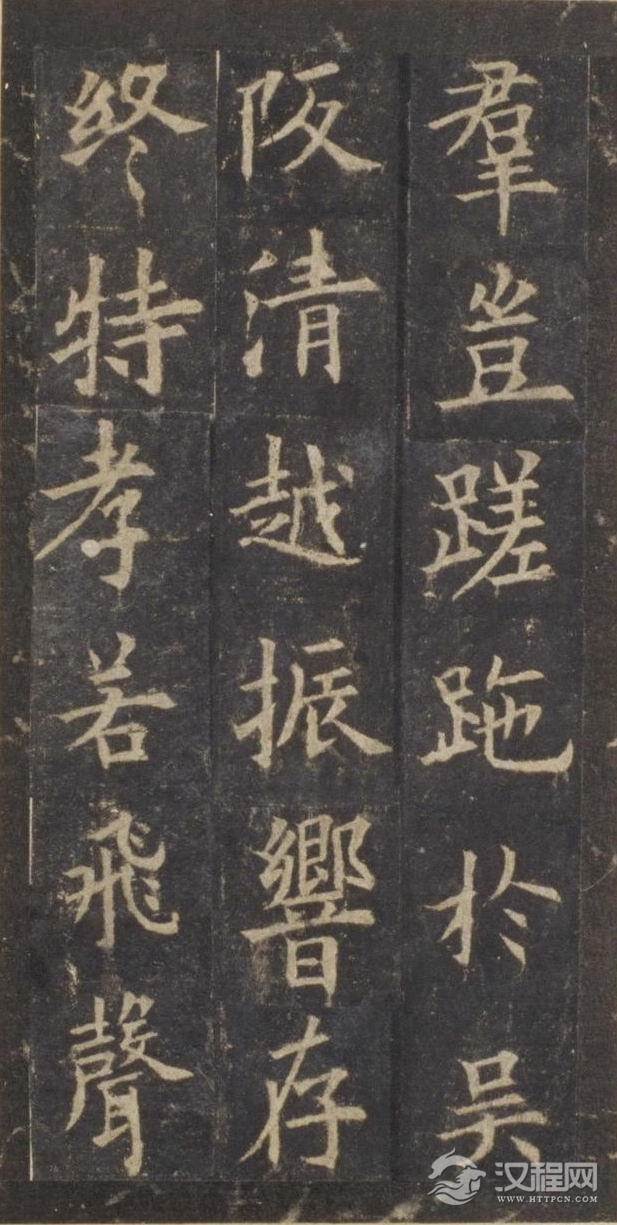 羣豈蹉跎於吴
阪清越振響存
終特孝若飛聲
汉程网
WWW.HTTPCN.COM